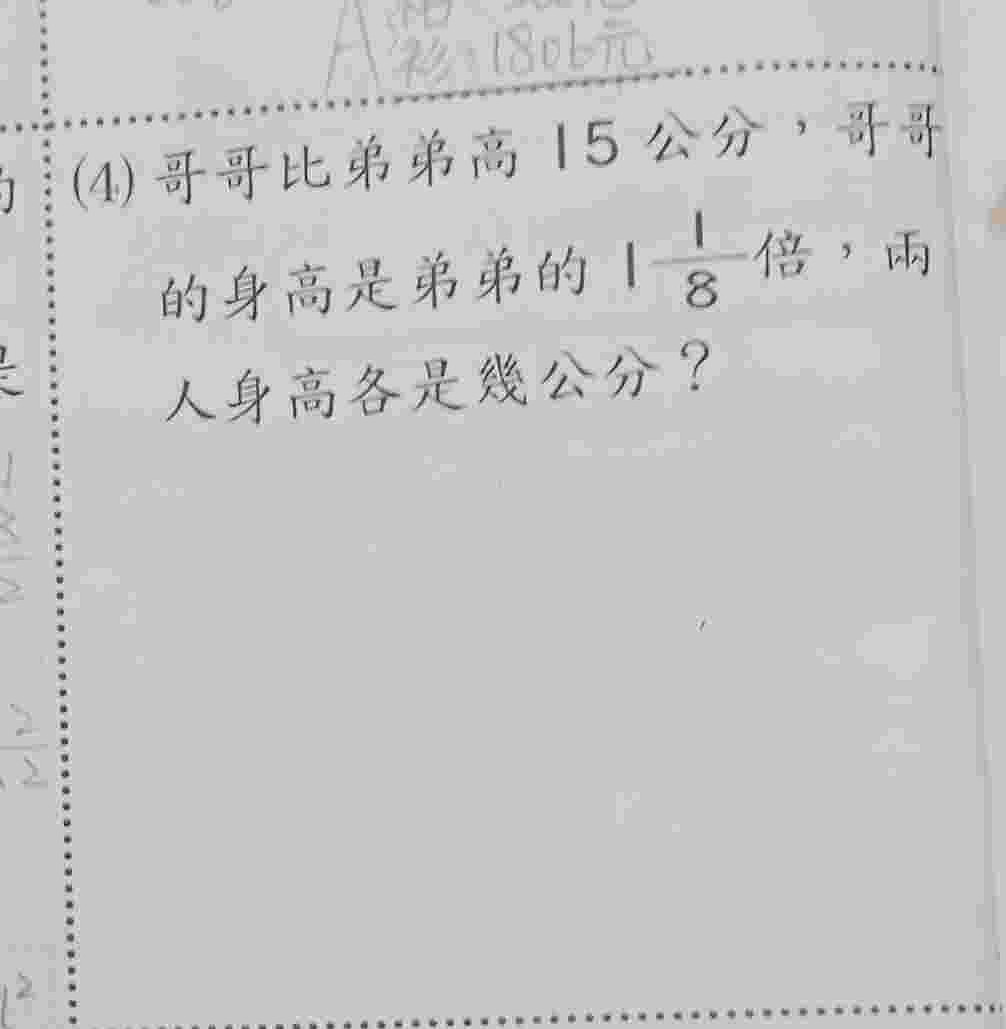 衫:1806元
(4) 哥哥比弟弟高 15 公分,哥哥
的身高是弟弟的 1 1/8 倍,兩
人身高各是幾公分?